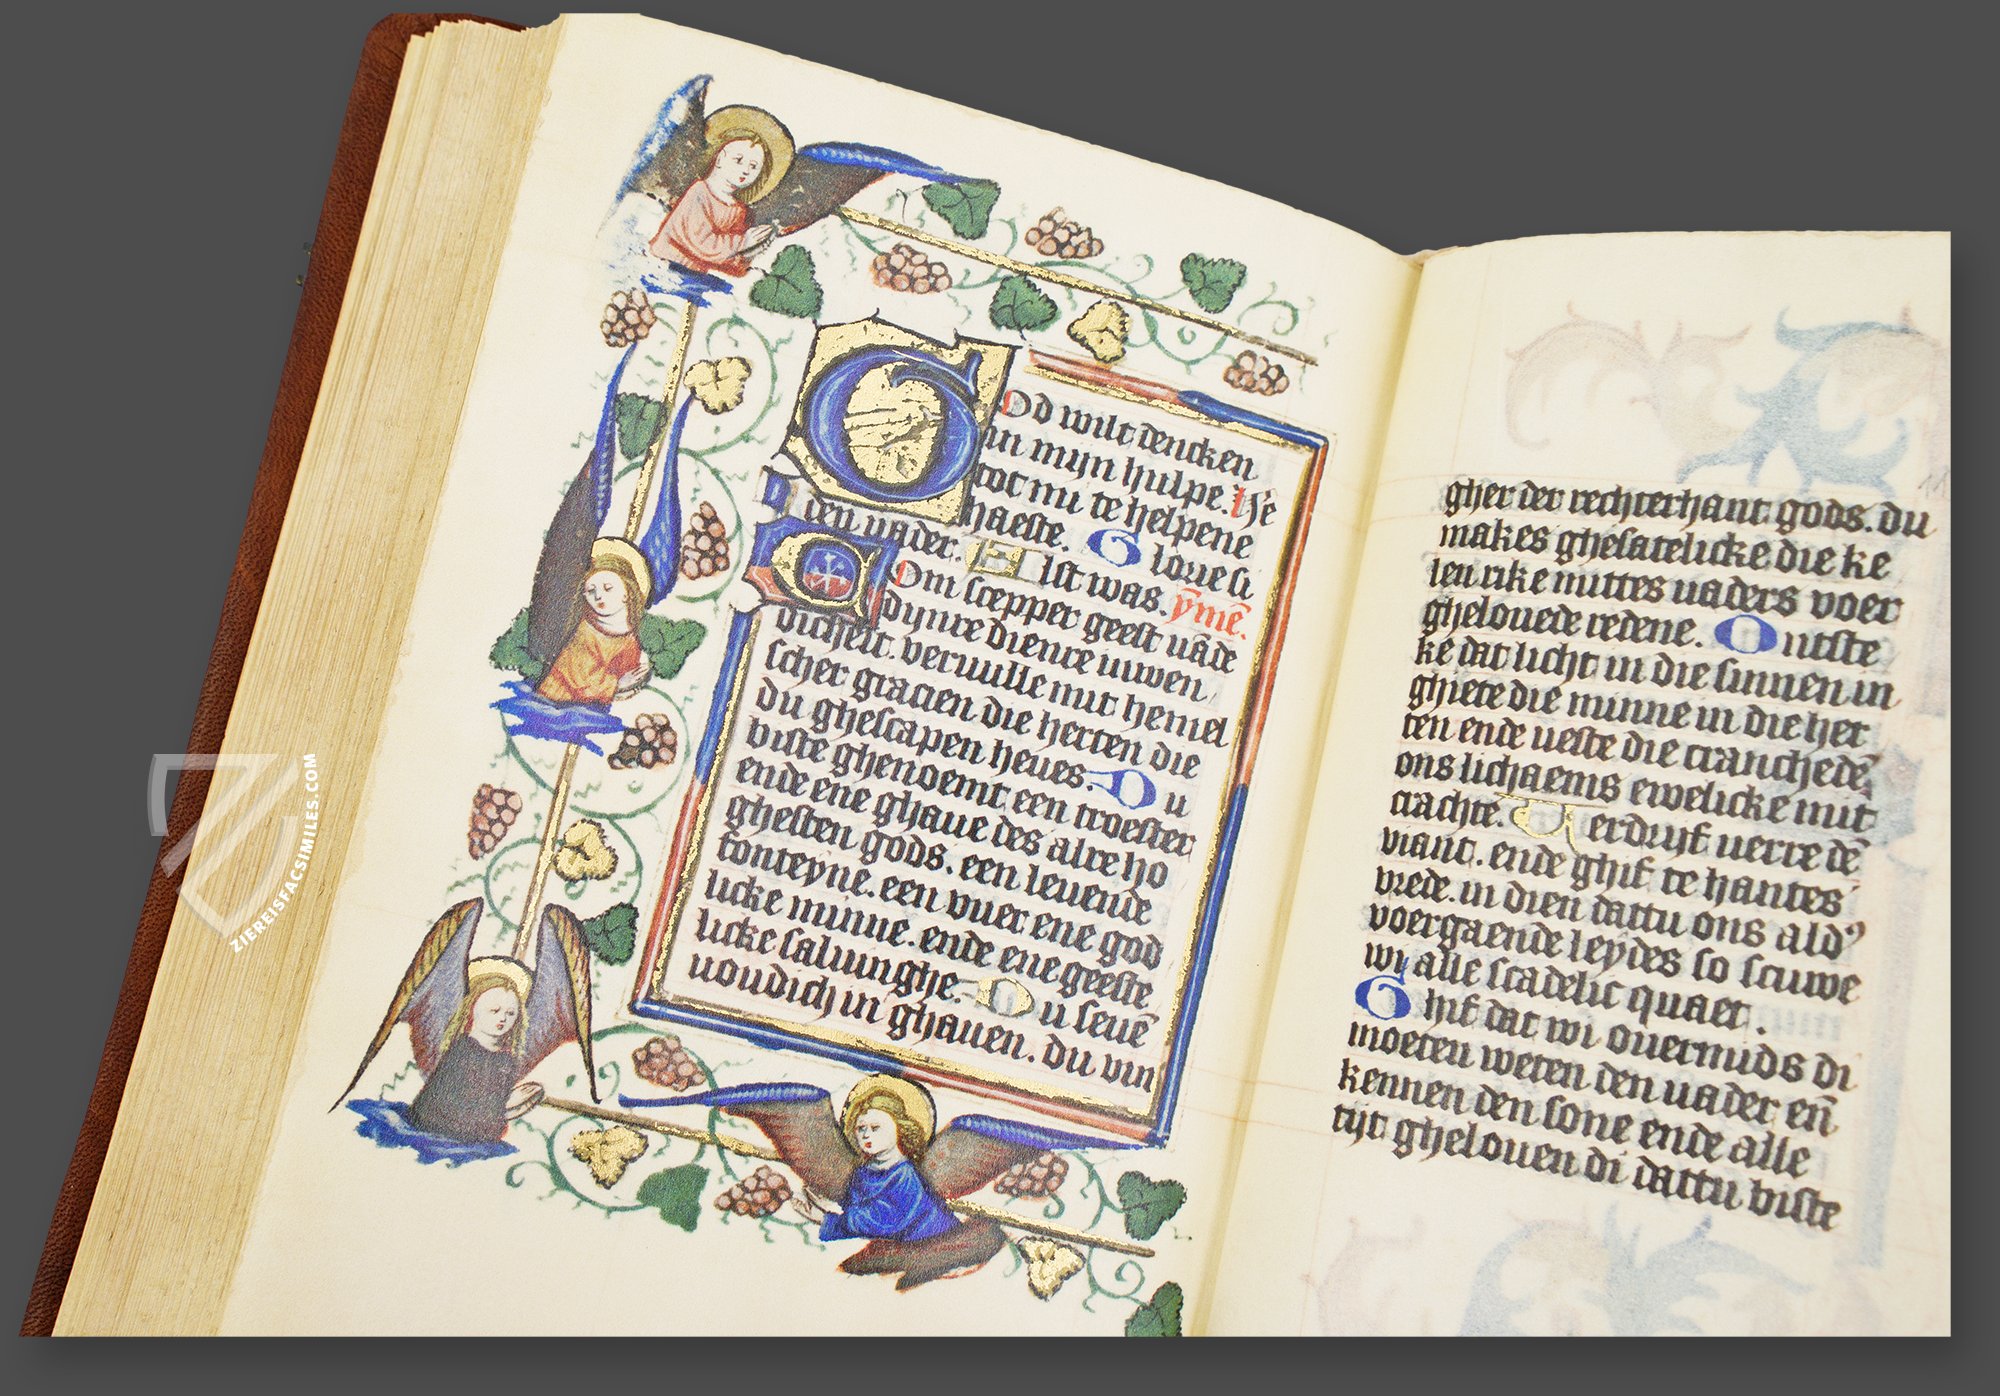 God wilt dencken
in mijn hulpe. He
re tot mi te helpene
haeste. Gloue si
den uader. Alst was. ẏmē.
Com scepper geest uāde
dijnre dienre inwen
dicheit. veruulle mit hemel
scher gracien die herten die
du ghescapen heues. Du
biste ghenoemt een troester
ende ene ghaue des alre ho
ghesten gods. een leuende
fonteyne. een vuer ene god
licke minne. ende ene geeste
licke saluinghe. Du seuē
uoudich in ghauen. du vin
gher der rechterhant gods. du
makes ghesatelicke die ke
len rike mittes uaders voer
ghelouede redene. Ontste
ke dat licht in die sinnen in
ghiete die minne in die her
ten ende ueste die cranchede
ons lichaems ewelicke mit
crachte. Verdrijf uerre dē
viant. ende ghif te hantes
vrede. in dien dattu ons ald
voergaende leydes so scuwe
wi alle scadelic quaet.
Ghif dat wi ouermids di
moeten weten den uader eñ
kennen den sone ende alle
tijt ghelouen di dattu biste
ZIEREISFACSIMILES.COM